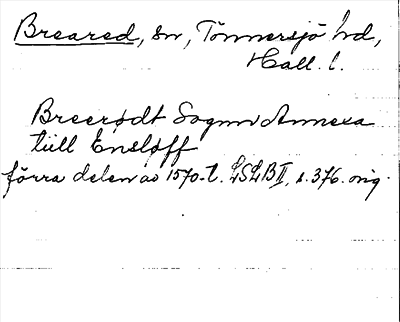 Breared, sn, Tönnersjö hd,
Hall. l.
Breerødt Sognn Annexa
till Ensløff
förra delen av 1570-t. LSLB II, s. 376. orig.